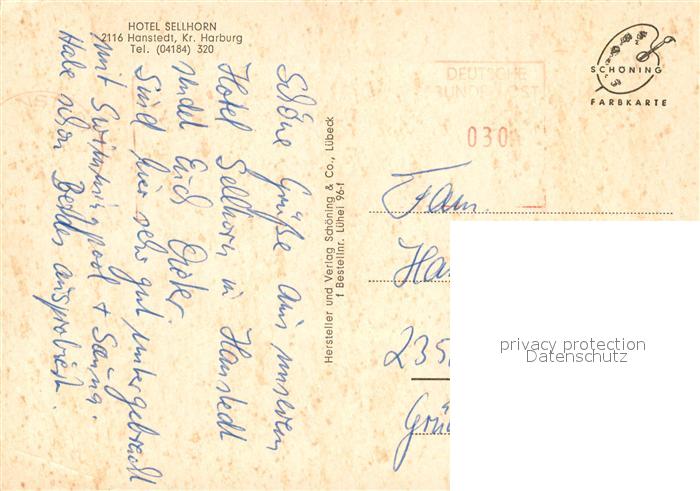 HOTEL SELLHORN
2116 Hanstedt, Kr. Harburg
Tel. (04184) 320
Schöne Grüße aus unserem
Hotel Sellhorn in Hanstedt
sendet Euch
Sind hier sehr gut untergebracht
mit Swimmingpool + Sauna.
Habe schon Beides ausprobiert.
Hersteller und Verlag Schöning & Co., Lübeck
f Bestellnr. Lühei 96-f
DEUTSCHE
BUNDESPOST
030
SCHÖNING
FARBKARTE
Fam.
Ha
235
Grü
privacy protection
Datenschutz